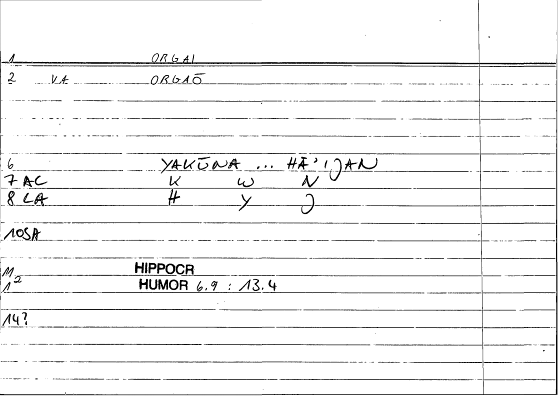 1 ORGAI
2 VA ORGAŌ
6 YAKŪNA ... HĀ'IJAN
7 AC K W N
8 LA H Y J
10SA
11 HIPPOCR
12 HUMOR 6.9 : 13.4
14?